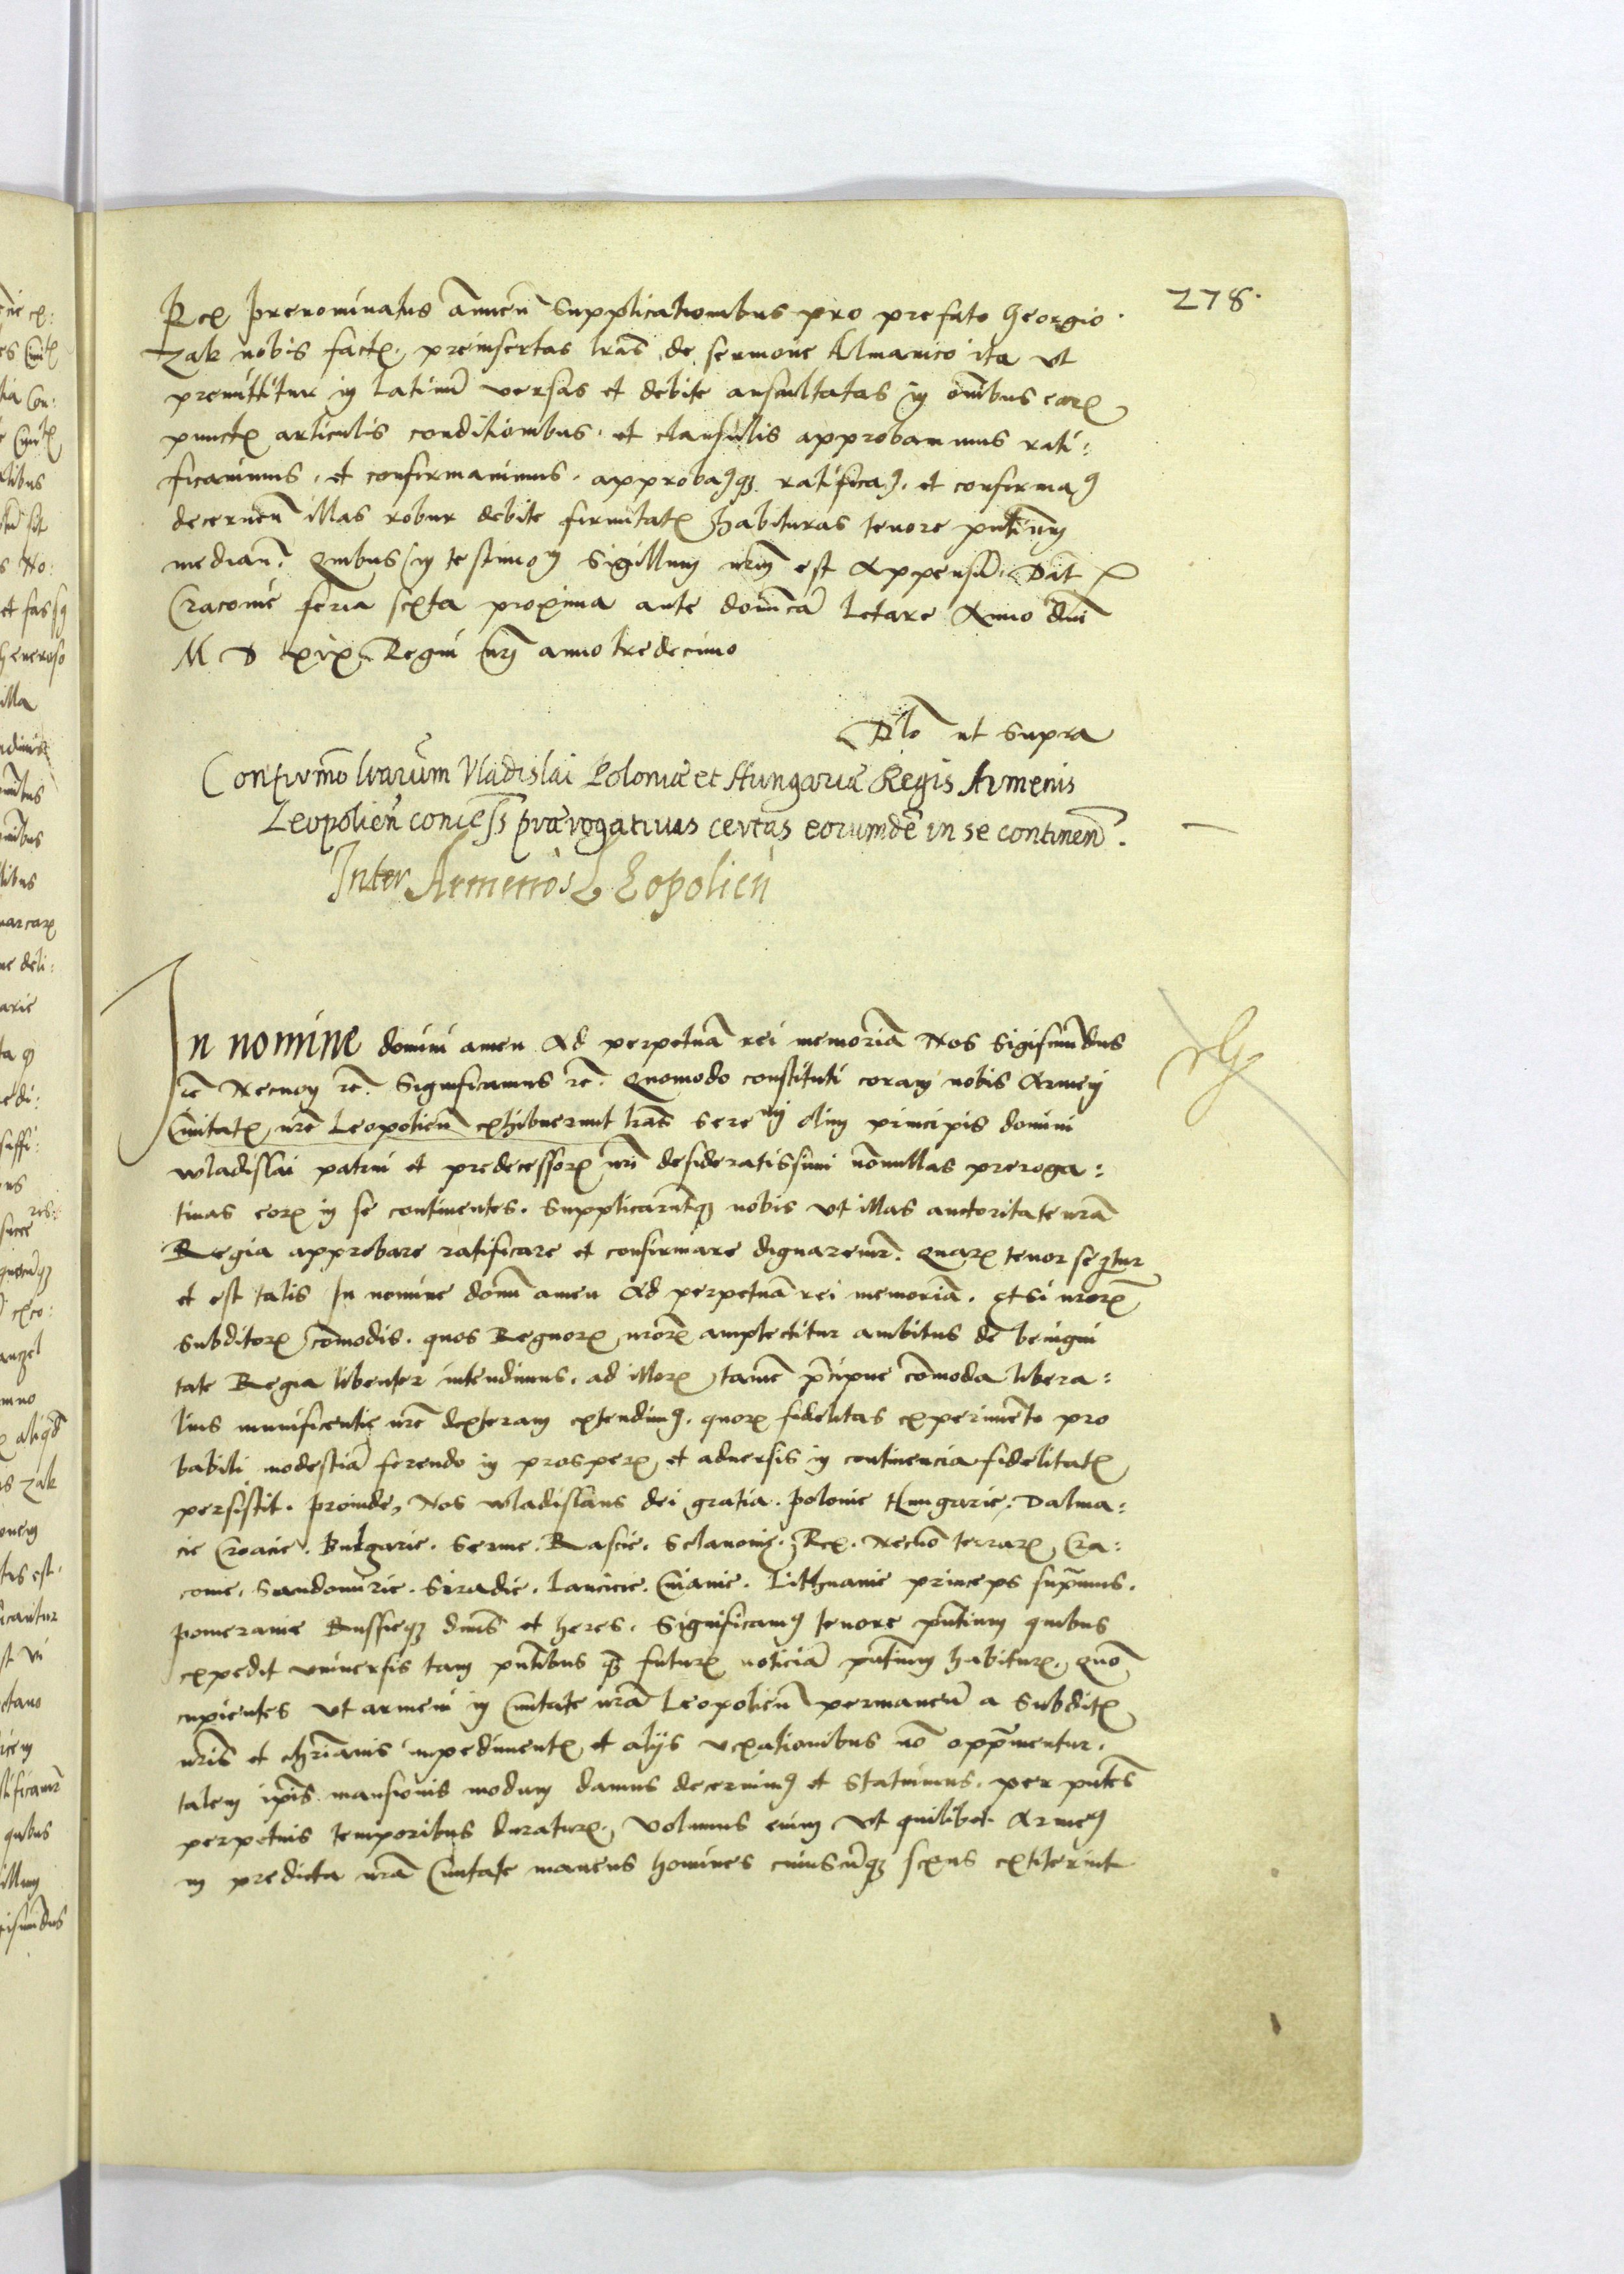 278.
Rex prenominatus annuen̄ supplicationibus pro prefato Georgio
Zak nobis factꝭ, preinsertas lrãs de sermone Almanico ita vt
premittitur in latinũ versas et debite auscultatas in om̃ibus earꝝ
punctꝭ articulis conditionibus. et clausulis approbauimus rati:
ficauimus. et confirmauimus. approbamꝰqꝫ ratificamꝰ. et confirmamꝰ
decernen̄ illas robur debite firmitatꝭ habituras tenore pñtium
median̄. Quibus in testimoĩ Sigillum nrm̃ est Appensũ. Dat̃
Cracouie feria sexta proxima ante domĩcã letare Anno dnĩ
M D xix. Regni nrĩ anno tredecimo
Rlo ut supra
Confirmo lrarum Vladislai Poloniæ et Hungariæ Regis Armenis
Leopolien̄ concess̄ prærogatiuas certas eorumdẽ in se continen̄.
Inter Armenos Leopolien̄
In nomine domini amen Ad perpetuã rei memoriã Nos Sigismũdus
rc̃ Necnon rc̃. Significamus rc̃. Quomodo constituti coram nobis Armeni
Ciuitatꝭ nrẽ Leopolien̄ exhibuerunt lrãs Sereᵐⁱ olim principis domini
wladislai patrui et predecessorꝭ nrĩ desideratissimi nõnullas preroga:
tiuas eorꝝ in se continentes. Supplicarũtqꝫ nobis vt illas auctoritate nrã
Regia approbare ratificare et confirmare dignaremr̃. Quarꝝ tenor seqtur
et est talis In nomine domĩ amen Ad perpetuã rei memoriã. Etsi nrorꝝ
subditorꝝ cõmodis. quos Regnorꝝ nrorꝝ amplectitur ambitus de benigni
tate Regia libenter intendimus. ad illorꝝ tamẽ p̃cipue cõmoda libera:
lius munificentie nrẽ dexteram extendimꝰ. quorꝝ fidelitas experimẽto pro
babili modestiã ferendo in prosperꝭ et aduersis in continencia fidelitatꝭ
persistit. Proinde, Nos wladislaus dei gratia. Polonie Hungarie. Dalma:
cie Croacie. Bulgarie. Seruie. Rascie. Sclauonie. Rex. Necnõ terrarꝝ Cra:
couie. Sandomirie. Siradie. Lancicie. Cuiauie. Lithuanie princeps sup̃mus.
Pomeranie Russieqꝫ dnũs et heres. Significamꝰ tenore pñtium quibus
expedit vniuersis tam pñtibus qꝫ̃ futurꝭ noticiã pñtium habiturꝭ. Quõ
cupientes vt armeni in Ciuitate nrã Leopolien̄ permanen̄ a Subditꝭ
nrĩs et chrĩanis impedimentꝭ et alijs vexationibus nõ opp̃mentur.
talem ipĩs mansionis modum damus decernimꝰ et Statuimus. per pñtes
perpetuis temporibus duraturꝭ. Volumus enim vt quilibet Armenꝰ
in predicta nrã Ciuitate manens homines cuiuscũqꝫ sexus extiterint